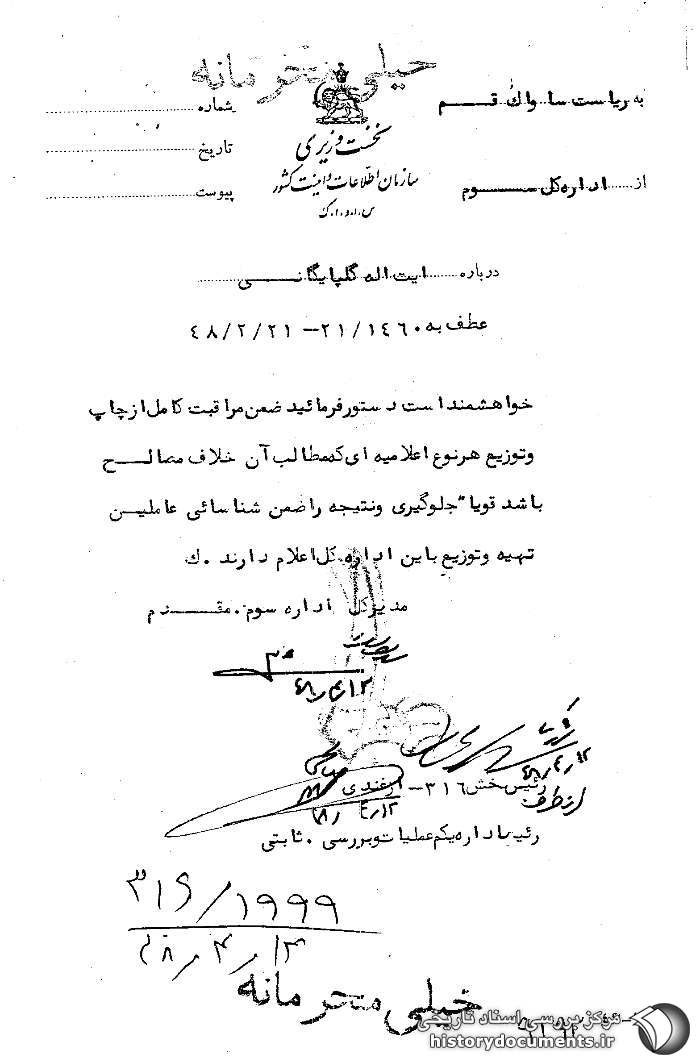 خیلی محرمانه
به ریاست ساواک قم
شماره
نخست وزیری
تاریخ
سازمان اطلاعات و امنیت کشور
از اداره کل سوم
س.ا.و.ا.ک
پیوست
درباره ایت اله گلپایگانی
عطف به ۲۱/۱۴۶۰ – ۴۸/۲/۲۱
خواهشمند است دستور فرمائید ضمن مراقبت کامل از چاپ
و توزیع هر نوع اعلامیه ای که مطالب آن خلاف مصالح
باشد قویا" جلوگیری و نتیجه را ضمن شناسائی عاملین
تهیه و توزیع باین اداره کل اعلام دارند . ک
مدیر کل اداره سوم . مقدم
رئیس بخش ۳۱۶ – ازغندی
از طرف
۴۸/۴/۱۲
رئیس اداره یکم عملیات و بررسی . ثابتی
۳۱۶/۱۹۹۹
۴۸/۴/۱۳
خیلی محرمانه
مرکز بررسی اسناد تاریخی
historydocuments.ir